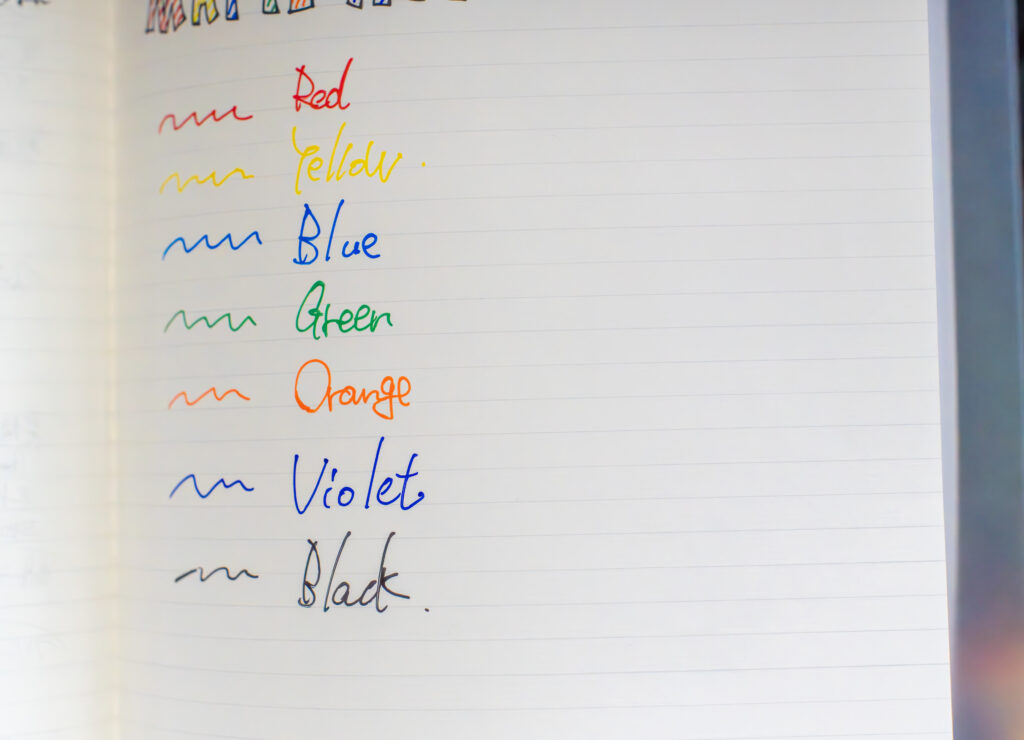 Red
Yellow.
Blue
Green
Orange
Violet
Black.